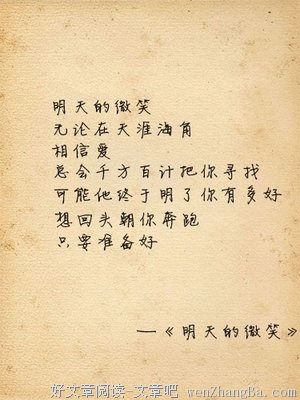 明天的微笑
无论在天涯海角
相信爱
总会千方百计把你寻找
可能他终于明了你有多好
想回头朝你奔跑
只要准备好
—《明天的微笑》
好文章阅读-文章吧 wenZhangBa.com